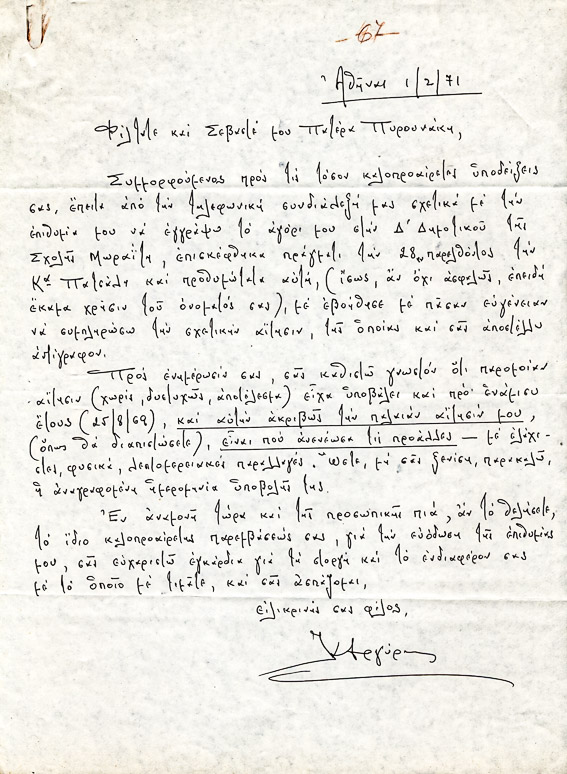 67
Ἀθῆναι 1/2/71
Φίλτατε καὶ Σεβαστέ μου Πατέρα Πυρουνάκη,
Συμμορφούμενος πρὸς τὶς τόσον καλοπροαίρετες ὑποδείξεις
σας, ἔπειτα ἀπὸ τὴν τηλεφωνικὴ συνδιάλεξή μας σχετικὰ μὲ τὴν
ἐπιθυμία μου νὰ ἐγγράψω τὸ ἀγόρι μου στὴν Δ' Δημοτικοῦ τῆς
Σχολῆς Μωραΐτη, ἐπισκέφθηκα πράγματι τὴν 28ην παρελθόντος τὴν
Κα Πατσέλη καὶ προθυμότατα αὐτή, (ἴσως, ἂν ὄχι ἀσφαλῶς, ἐπειδὴ
ἔκαμα χρῆσιν τοῦ ὀνόματός σας), μὲ ἐβοήθησε μὲ πᾶσαν εὐγένειαν
νὰ συμπληρώσω τὴν σχετικὴν αἴτησιν, τῆς ὁποίας καὶ σᾶς ἀποστέλλω
ἀντίγραφον.
Πρὸς ἐνημέρωσίν σας, σᾶς καθιστῶ γνωστὸν ὅτι παρομοίαν
αἴτησιν (χωρίς, δυστυχῶς, ἀποτέλεσμα) εἶχα ὑποβάλει καὶ πρὸ ἑνάμισυ
ἔτους (25/8/69), καὶ αὐτὴν ἀκριβῶς τὴν παλιὰν αἴτησίν μου,
(ὅπως θὰ διαπιστώσετε), εἶναι ποὺ ἀνενέωσα τὶς προάλλες — μὲ ἐλάχι-
στες, φυσικά, λεπτομερειακὲς παραλλαγές. Ὥστε, μὴ σᾶς ξενίσῃ, παρακαλῶ,
ἡ ἀναγραφομένη ἡμερομηνία ὑποβολῆς της.
Ἐν ἀναμονῇ τώρα καὶ τῆς προσωπικῆς πιά, ἂν τὸ θελήσετε,
τὸ ἴδιο καλοπροαίρετης παρεμβάσεώς σας, γιὰ τὴν εὐόδωση τῆς ἐπιθυμίας
μου, σᾶς εὐχαριστῶ ἐγκάρδια γιὰ τὴ στοργὴ καὶ τὸ ἐνδιαφέρον σας
μὲ τὸ ὁποῖο μὲ τιμᾶτε, καὶ σᾶς ἀσπάζομαι,
εἰλικρινής σας φίλος,